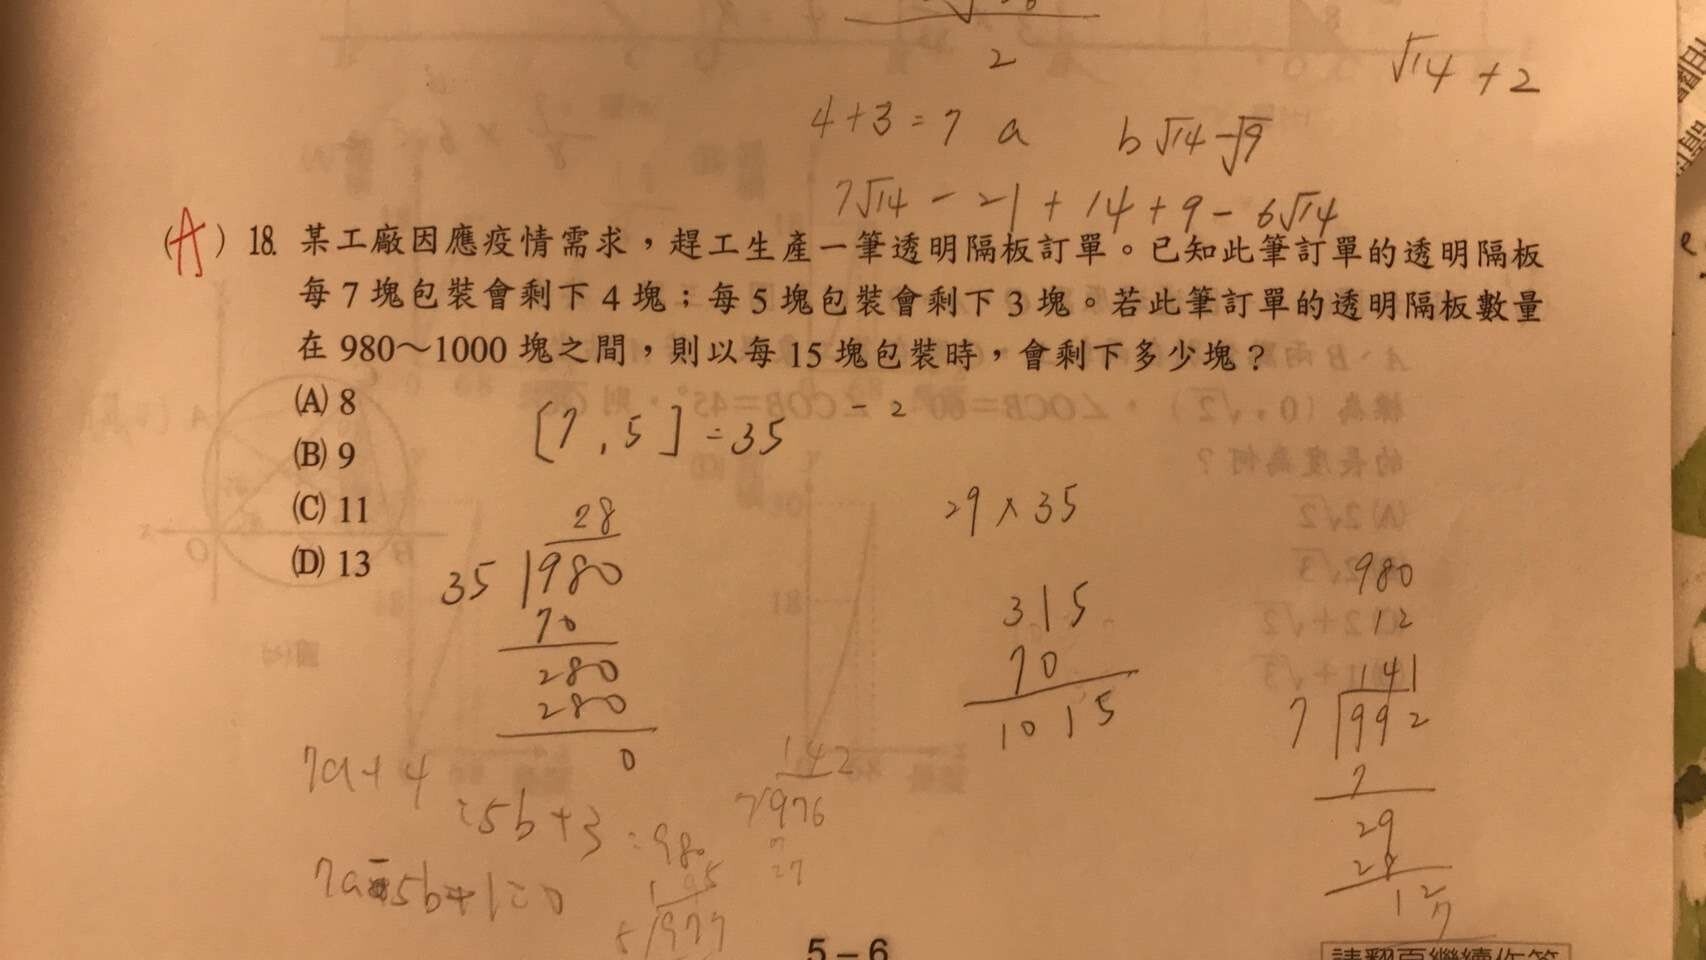 2
√14 + 2
4+3=7 a b√14-√9
7√14 - 21 + 14 + 9 - 6√14
(A) 18. 某工廠因應疫情需求，趕工生產一筆透明隔板訂單。已知此筆訂單的透明隔板
每 7 塊包裝會剩下 4 塊；每 5 塊包裝會剩下 3 塊。若此筆訂單的透明隔板數量
在 980～1000 塊之間，則以每 15 塊包裝時，會剩下多少塊？
(A) 8
(B) 9
(C) 11
(D) 13
[7,5]=35
-2
28
35 980
70
280
280
0
29×35
315
70
1015
980
12
141
7 992
7
29
28
12
7
7a+4
=5b+3=980
7a-5b+1=0
142
7 976
7
27
195
5 977
5－6
請翻頁繼續作答